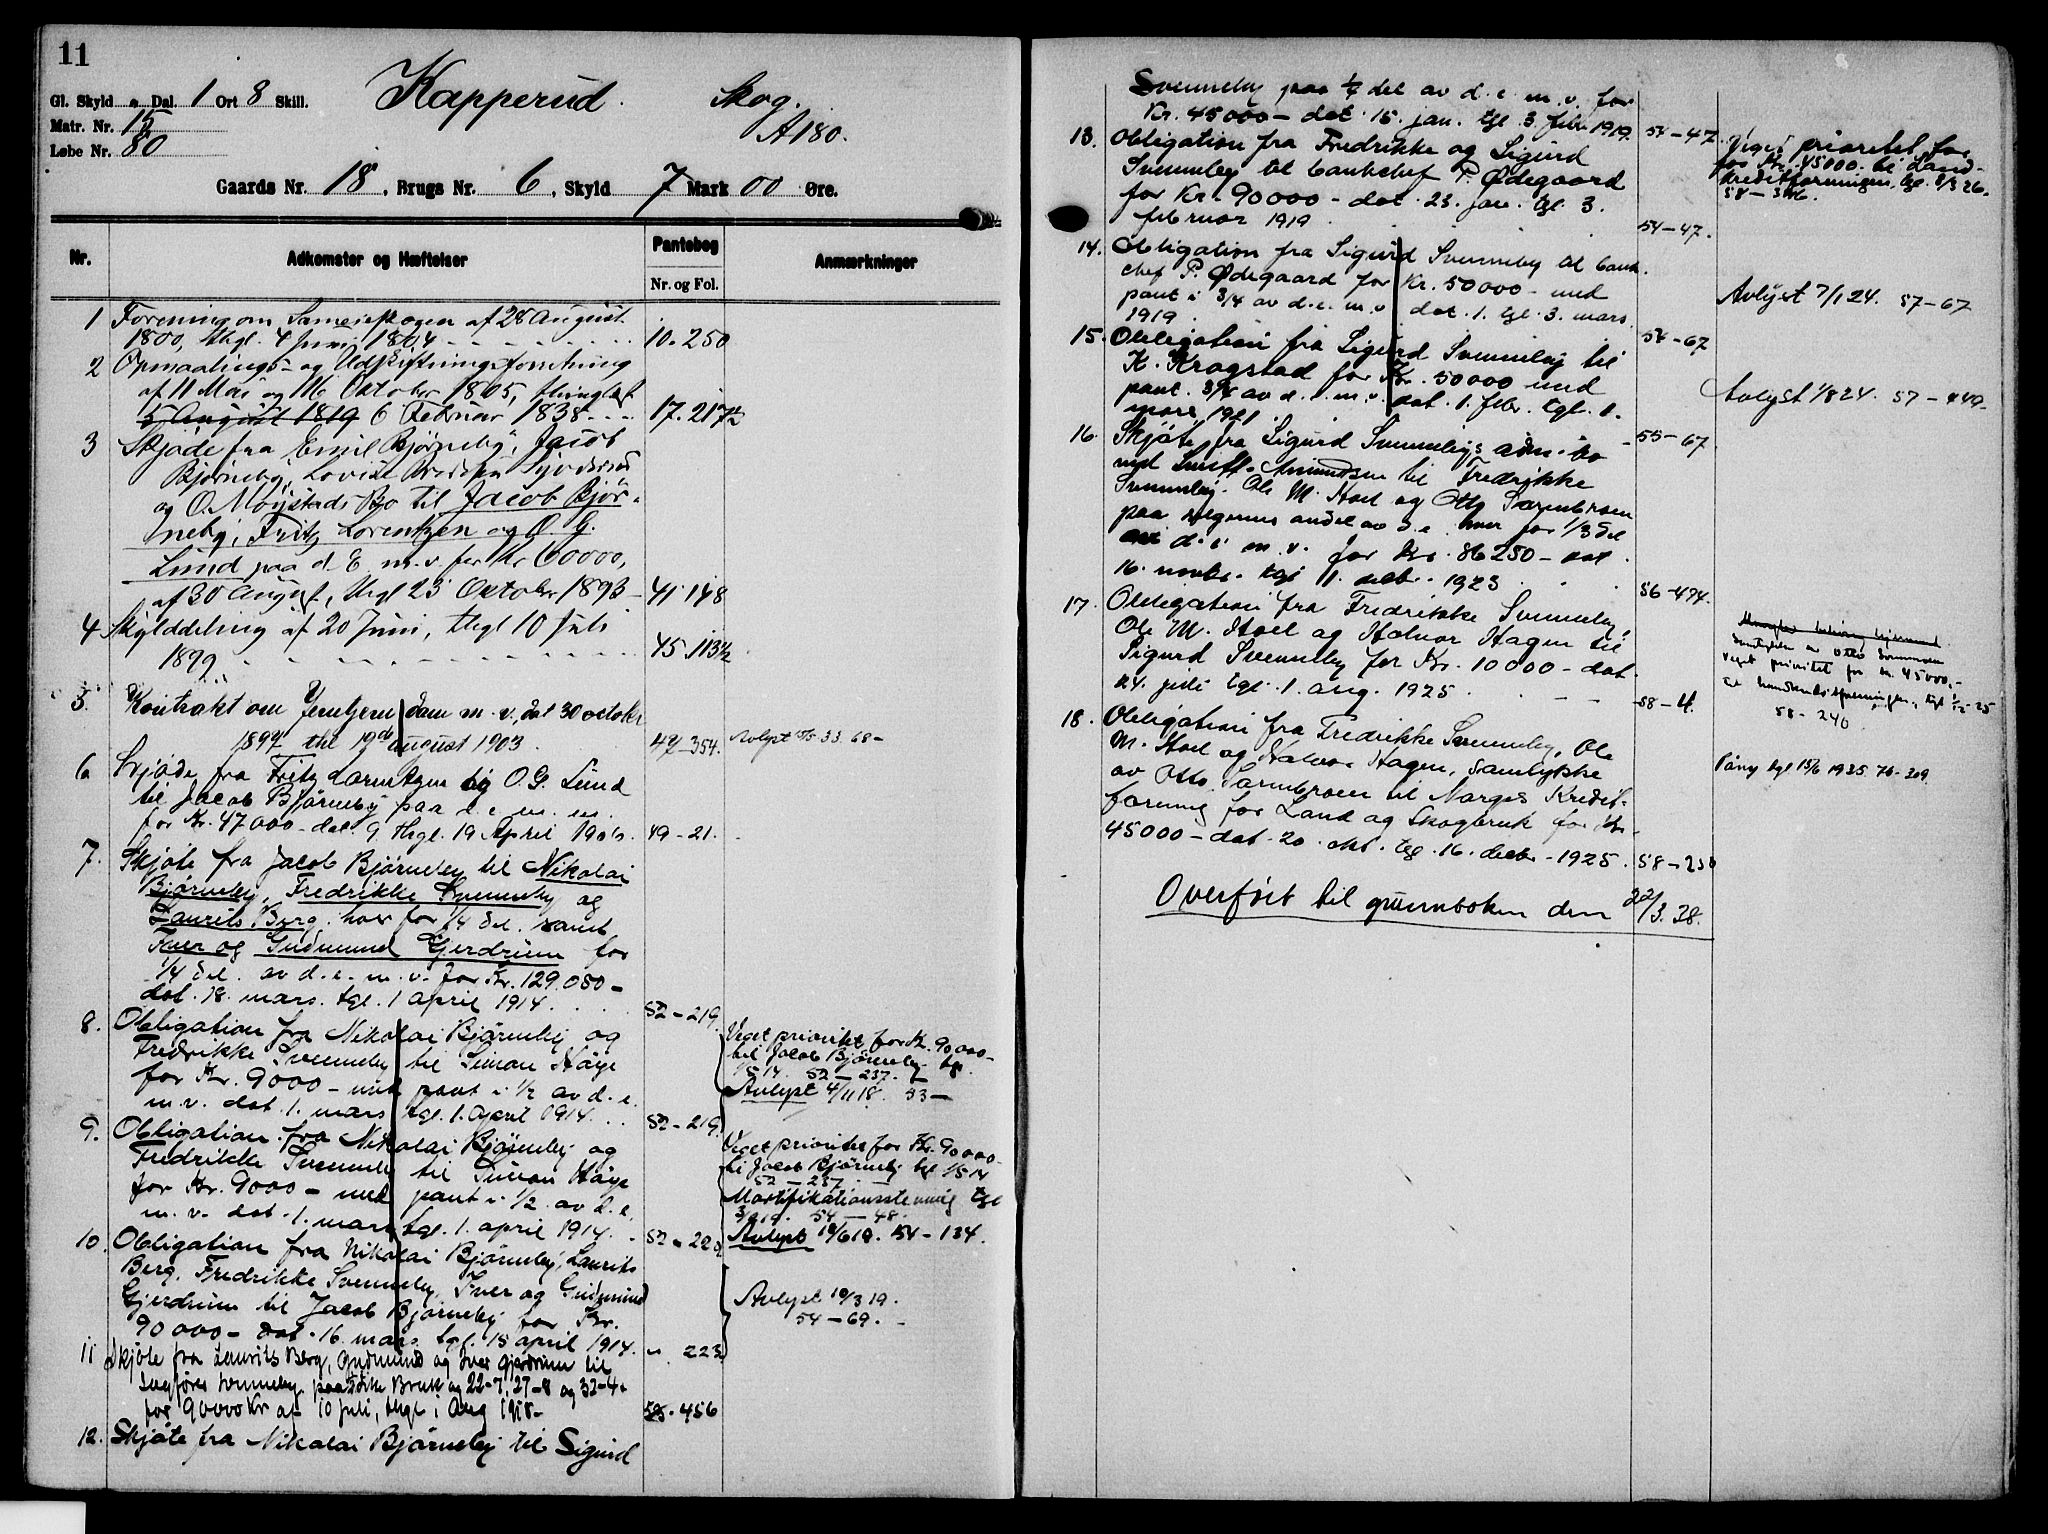 11
Gl. Skyld " Dal. 1 Ort 8 Skill.
Kapperud. Skog.
Matr. Nr. 15
A 180.
Løbe Nr. 80
Gaards Nr. 18, Brugs Nr. 6, Skyld 7 Mark 00 Øre.
Nr.
Adkomster og Hæftelser
Pantebog
Nr. og Fol.
Anmærkninger
1 Forening om Sameieskogen af 28 August
1800, thgl. 4 Juni 1804 10. 250
2 Opmaalings- og Udskiftningsforretning
af 11 Mai og 16 Oktober 1805, thinglæst
5 August 1819 6 Februar 1838 17. 217½
3 Skjøde fra Emil Bjørneby, Jacob
Bjørneby, Lovise
og O. Møystads Bo til Jacob Bjør-
neby, Fritz Lorentzen og O. G.
Lund paa d. E. m. v. for Kr 60000,
af 30 August, thgl 23 Oktober 1893 - 41. 148
4 Skylddeling af 20 Juni, thgl 10 Juli
1899 45. 113½
5. Kontrakt om Jerntjern dam m. v., dat 30 october
1897 thl 19de august 1903. 47-354. Avlyst 33. 68-
6 Skjøde fra Fritz Lorentzen og O. G. Lund
til Jacob Bjørneby paa d. e. m. m.
for Kr. 47000- dat. 9 thgl. 19 April 190 49-21.
7. Skjøte fra Jacob Bjørneby til Nikolai
Bjørneby, Fredrikke Svenneby og
Laurits Berg, hver for 1/4 del. samt
Iver og Gudmund Gjerdrum for
1/4 del. av d. e. m. v. for Kr. 129.050-
dat. 18. mars. tgl. 1 april 1914. 52-219.
8. Obligation fra Nikolai Bjørneby og
Fredrikke Svenneby til Simon Høye
for Kr. 9000- med pant i 1/2 av d. e.
m. v. dat. 1. mars tgl. 1. April 1914. 52-219.
Veget prioritet for Kr. 90000-
til Jacob Bjørneby tgl.
1/5 14. 52-237.
Avlyst 4/11 18. 53-
9. Obligation fra Nikolai Bjørneby og
Fredrikke Svenneby til Simon Høye
for Kr. 9000- med pant i 1/2 av d. e.
m. v. dat. 1. mars tgl. 1. april 1914. 52-220.
Veget prioritet for Kr. 90000-
til Jacob Bjørneby tgl 1/5 14
52-237.
Mortifikationsstevning tgl
54-48.
Avlyst 10/6 19. 54-134.
10. Obligation fra Nikolai Bjørneby, Laurits
Berg, Fredrikke Svenneby, Iver og Gudmund
Gjerdrum til Jacob Bjørneby for Kr.
90000- dat. 16. mars tgl. 15 april 1914. " 223
Avlyst 10/3 19.
54-69.
11 Skjøte fra Laurits Berg, Gudmund og Iver Gjerdrum til
Sagfører Svenneby paa dette Bruk og 22-7, 27-8 og 32-4
for 90000 Kr af 10 Juli, thgl 1 Aug 1918- 53. 456
12. Skjøte fra Nikolai Bjørneby til Sigurd
Svenneby paa 1/4 del av d. e. m. v. for
Kr. 45000- dat. 15. jan. tgl. 3. febr 1919. 54-47.
13. Obligation fra Fredrikke og Sigurd
Svenneby til bankchef P. Ødegaard
for Kr. 90000- dat. 23. jan. tgl. 3.
februar 1919. 54-47.
Viget prioritet for
for Kr. 45000. til Land-
kreditforeningen, tgl. 8/3 26.
58-346.
14. Obligation fra Sigurd Svenneby til bank-
chef P. Ødegaard for Kr. 50000- med
pant i 3/4 av d. e. m. v. dat. 1. tgl. 3. mars
1919. 54-67
Avlyst 7/1 24. 57-67
15. Obligation fra Sigurd Svenneby til
K. Kragstad for Kr. 50000 med
pant. 3/4 av d. e. m. v. dat. 1. febr. tgl. 1.
mars 1921. 55-67.
Avlyst 1/8 24. 57-449.
16. Skjøte fra Sigurd Svennebys adm. bo
ved Amundsen til Fredrikke
Svenneby. Ole M. Stoel og Otto Sørmbroen
paa selgernes andel av d. e. hver for 1/3 del
av d. e. m. v. for Kr. 86250- dat.
16. novbr. tgl 11. decbr. 1923 56-474.
17. Obligation fra Fredrikke Svenneby,
Ole M. Stoel og Halvor Hagen til
Sigurd Svenneby for Kr. 10000- dat.
24. juli tgl. 1. aug. 1925. 58-4.
Samtykke av Otto
Veget prioritet for kr. 45000.-
til Landkreditforeningen, tgl 1/12-25
58-240
18. Obligation fra Fredrikke Svenneby, Ole
M. Stoel og Halvor Hagen, samtykke
av Otto Sørmbroen til Norges Kredit-
forening for Land og Skogbruk for Kr.
45000- dat. 20. okt. tgl. 16. decbr. 1925. 58-250
Påny tgl 15/6 1935. 76-209.
Overført til grunnboken den 22/3. 38.